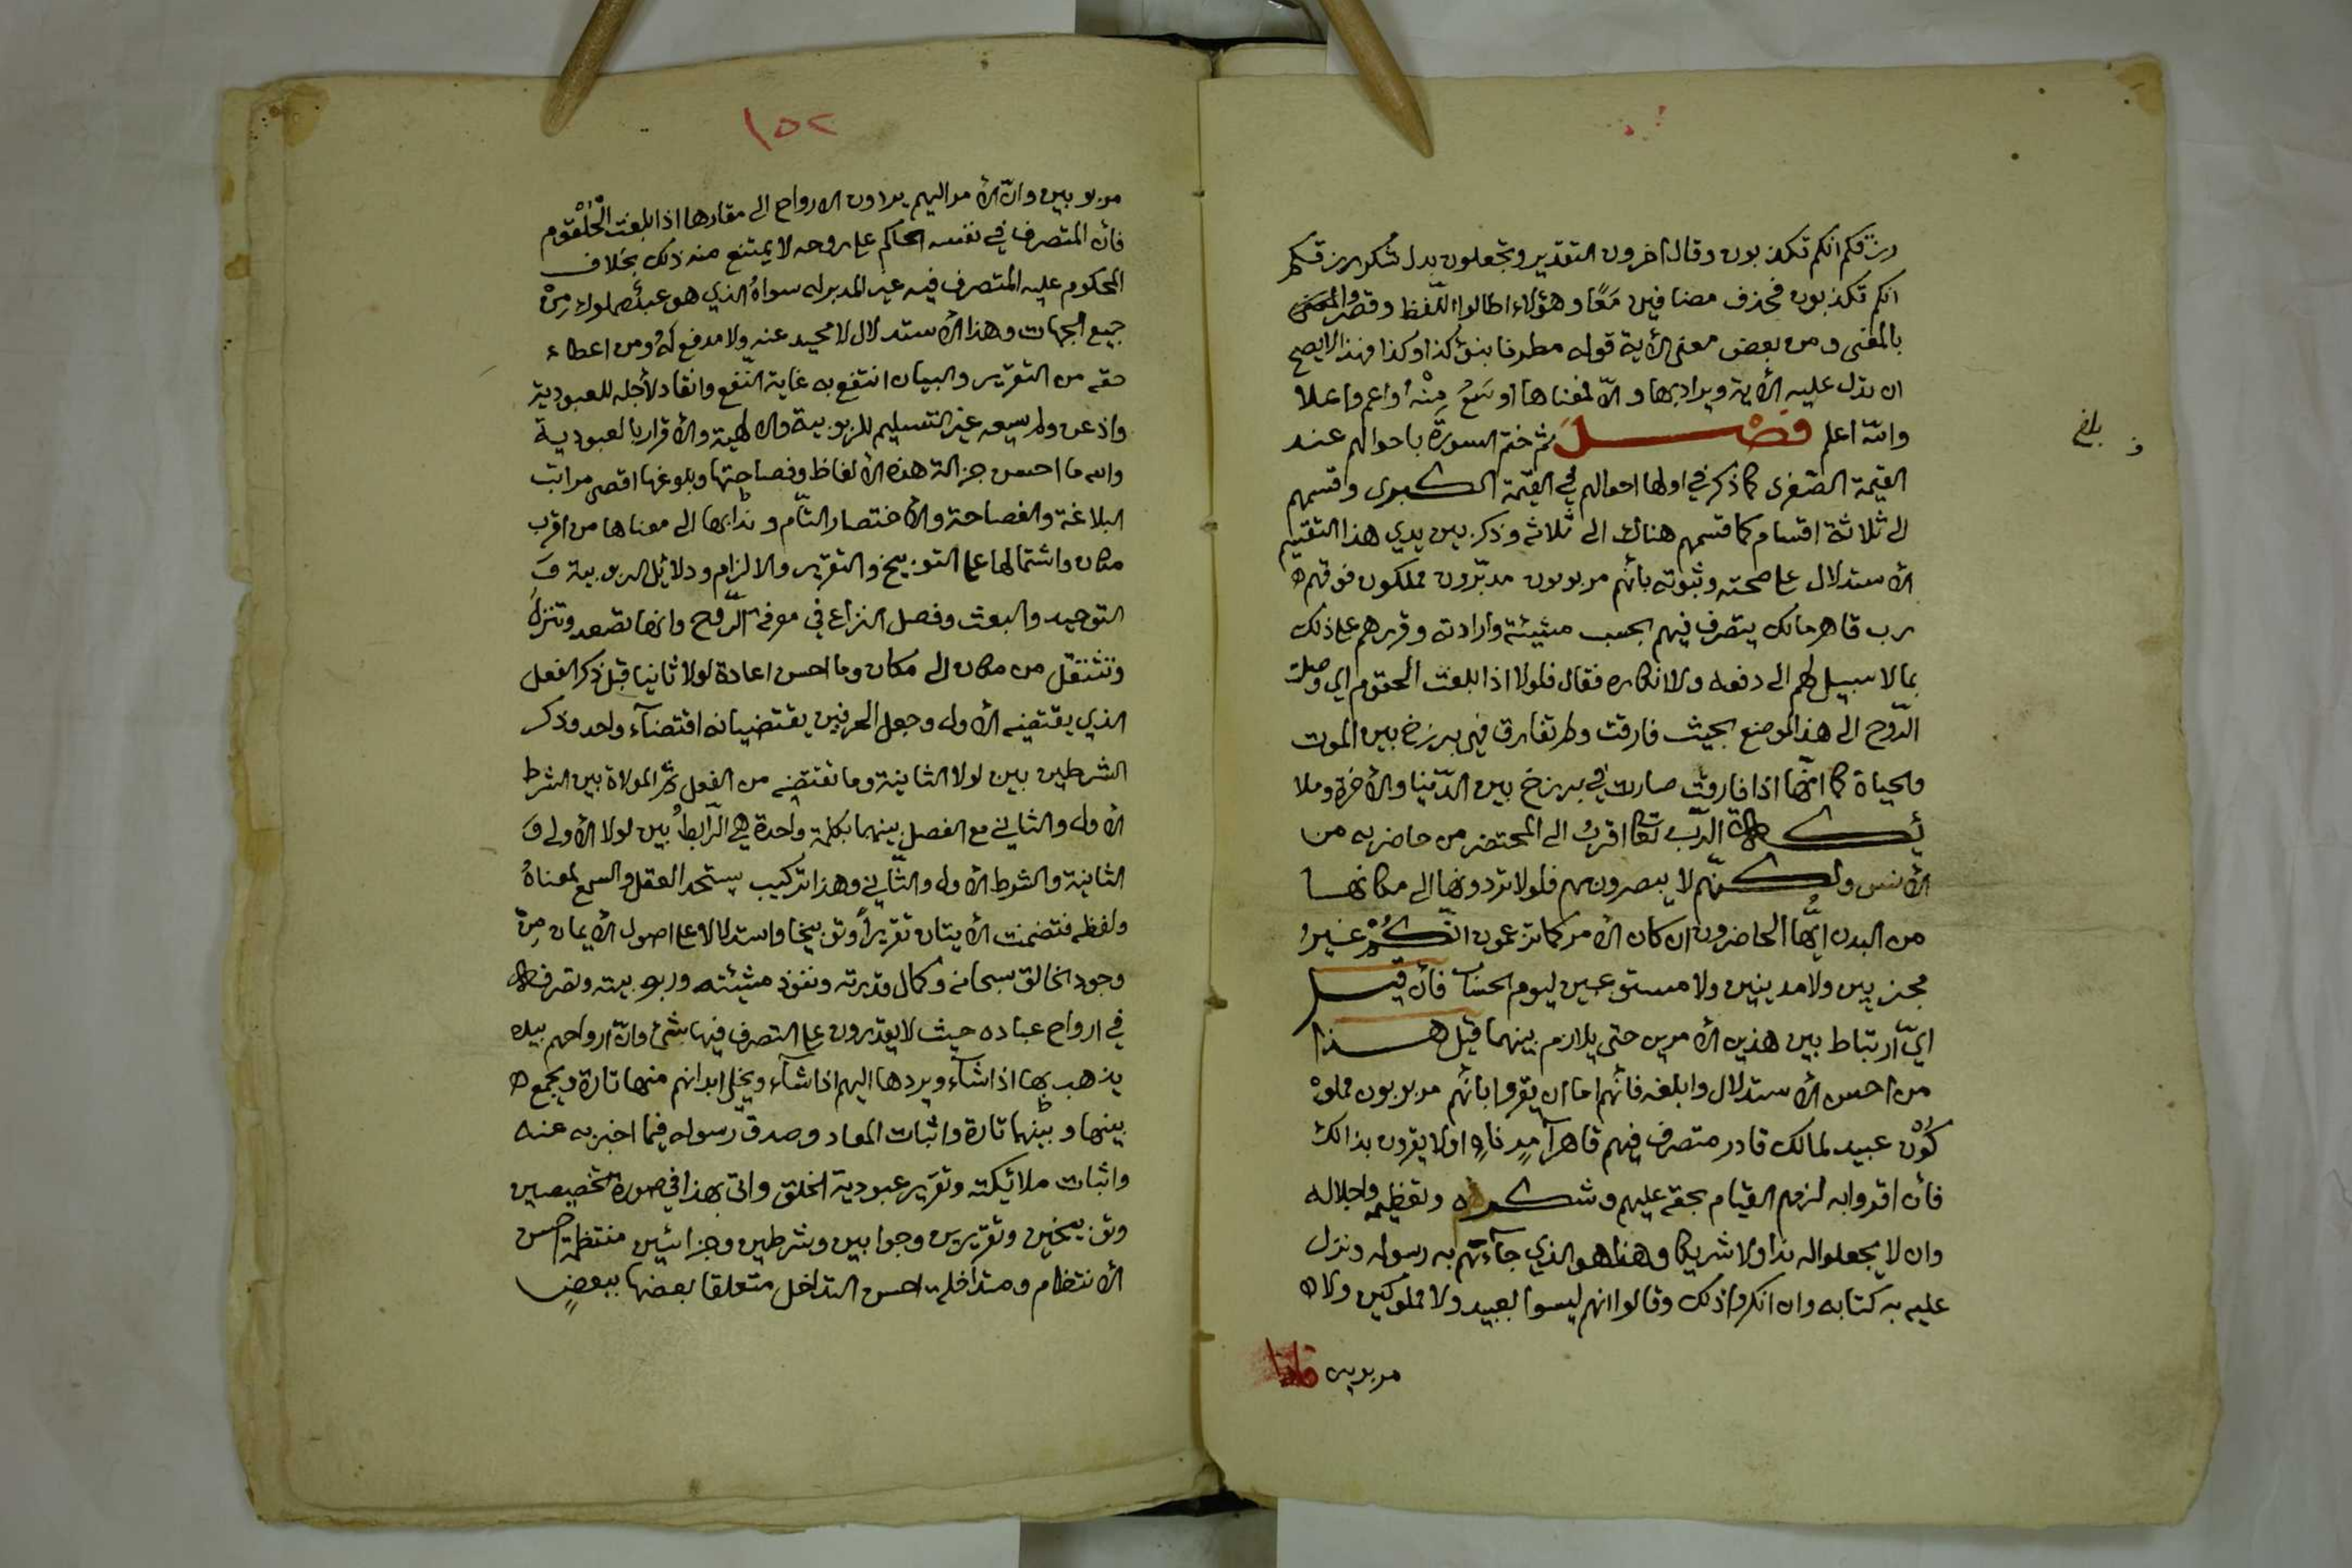 رزقكم انكم تكذبون وقال اخرون التقدير وتجعلون بدل شكر رزقكم
انكم تكذبون فحذف مضافين معًا وهؤلاء اطالوا اللّفظ وقصروا
بالمعنى ومن بعض معنى الأية قوله مطرنا بنؤ كذا وكذا فهذا لا يصح
ان تدل عليه الأية ويراد بها والّا فمعناها اوسَعُ مِنْهُ واعم واعلا
والله اعلم فَصْلَ ثم ختم السورة باحوالهم عند
القيمة الصّغرى كما ذكر في اولها احوالهم في القيمة الكبرى وقسمهم
الى ثلاثة اقسام كما قسمهم هناك الى ثلاثه وذكر بين يدي هذا التقسيم
الأستدلال على صحته وثبوته بأنهم مربوبون مدبّرون مملكون فوقهم
رب قاهر مالك يتصرف فيهم بحسب مشيئة وارادته وقررهم على ذلك
بما لا سبيل لهم الى دفعه ولا انكاره فقال فلولا اذا بلغت الحلقوم اي وصلت
الرّوح الى هذا الموضع بحيث فارقت ولم تفارق فهي برزخ بين الموت
والحياة كما انّها اذا فارقت صارت في برزخ بين الدّنيا والأخرة وملا
ئكة الرّب تعا اقربُ الى المحتضر من حاضريه من
الأنس ولكنّهم لا يبصرون بهم فلولا تردونها الى مكانها
من البدن ايُّها الحاضرون ان كان الأمر كما تزعمون انّكُمْ غيرُ
مجزيين ولا مدينين ولا مبعوثين ليوم الحساب فأن قيل
ايّ ارتباط بين هذين الأمرين حتى يلازم بينهما قيل هذا
من احسن الأستدلال وابلغه فأنّهم اما ان يقروا بأنّهم مربوبون مملو
كُوْن عبيد لمالك قادر متصرف فيهم قاهر آمِرٍ ناهٍ او لا يقرون بذالك
فأن اقروا به لزمهم القيام بحقه عليهم وشكره وتعظيمه واجلاله
وان لا يجعلوا له ندا ولا شريكا وهذا هو الذي جآءتهم به رسوله ونزل
عليه به كتابه وان انكروا ذلك وقالوا انهم ليسوا بعبيد ولا مملوكين ولا
مربوبين
بلغ
١٥٢
مربوبين وانّ الأمر اليهم يردون الارواح الى مقارها اذا بلغت الْحُلْقوم
فأن المتصرف في نفسه الحاكم على روحه لا يمتنع منه ذلك بخلاف
المحكوم عليه المتصرف فيه غيره المدبر له سواهُ الذي هو عبدٌ مملوك مِنْ
جميع الجهات وهذا الأستدلال لا محيد عنه ولا مدفع لهُ ومن اعطاء
حقه من التقرير والبيان انتفع به غاية النّفع وانقاد لأجله للعبودية
واذعن ولم يسعه غير التسليم للربوبية والالهية والأقرار بالعبودية
والله ما احسن جزالة هذه الألفاظ وفصاحتها وبلوغها اقصى مراتب
البلاغة والفصاحة والأختصار التّام وندائها الى معناها من اقرب
مكان واشتمالها على التوبيخ والتقرير والالزام ودلائل الربوبية وَ
التوحيد والبعث وفصل النزاع في معرفة الرّوح وانها تصعد وتنزل
وتنتقل من مكان الى مكان وما احسن اعادة لولا ثانيا قبل ذكر الفعل
الذي يقتضيه الأول وجعل الحرفين يقتضيانه اقتضاء واحد وذكر
الشرطين بين لولا الثانية وما تقتضيه من الفعل ثم الموالاة بين الشرط
الأول والثاني مع الفصل بينهما بكلمة واحدة هي الرّابطُ بين لولا الأولى وَ
الثانية والشرط الأول والثّاني وهذا تركيب يستحد العقل والسمع لمعناهُ
ولفظه فتضمنت الأيتان تقريراً وتوبيخا واستدلالا على اصول الأيمان مِن
وجود الخالق سبحانه وكمال قدرته ونفوذ مشيئته وربوبيته وتصرفه
في ارواح عباده حيث لا يقدرون على التصرف فيها بشئ وانّ ارواحهم بيده
يذهب بها اذا شآء ويردها اليهم اذا شآء ويخلى ابدانهم منها تارة ويجمع
بينها وبينهما تارة واثبات المعاد وصدق رسوله فيما اخبر به عنه
واثبات ملائيكته وتقرير عبودية الخلق واتى بهذا في صورة تخصيصين
وتوبيخين وتقريرين وجوابين وشرطين وجزائين منتظمة احسن
الأنتظام ومتداخلة احسن التداخل متعلقا بعضها ببعضٍ